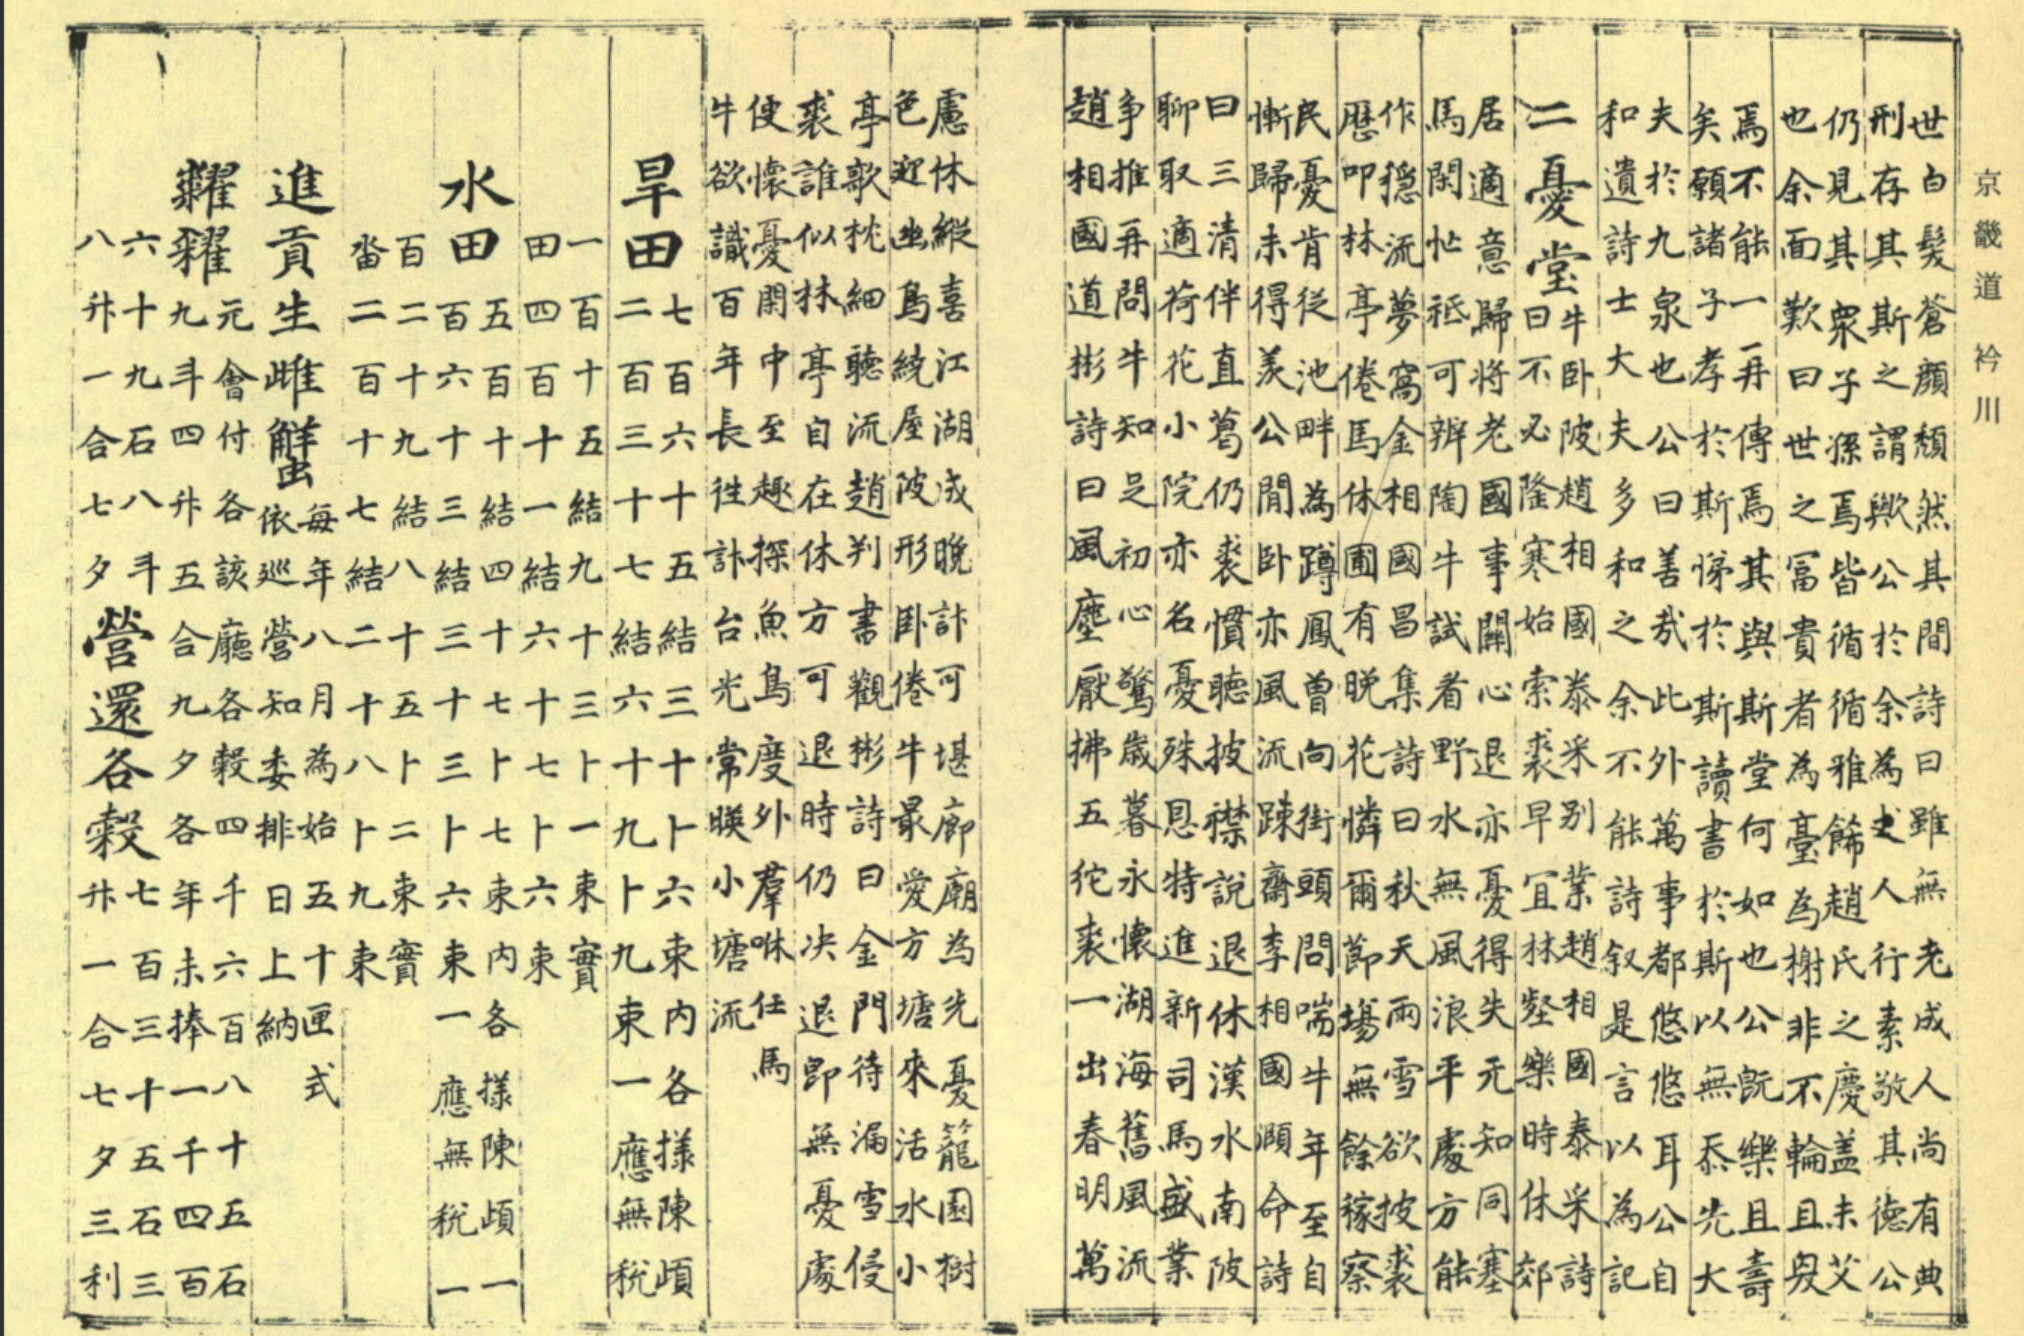 京畿道 衿川
世白髮蒼顏頹然其間詩曰雖無老成人尚有典
刑存其斯之謂歟公於余為丈人行素敬其德公
仍見其眾子孫焉皆循循雅飭趙氏之慶盖未艾
也余面歎曰世之冨貴者為臺為榭非不輪且奐
焉不能一再傳焉其與斯堂何如也公旣樂且壽
矣願諸子孝於斯悌於斯讀書於斯以無忝先大
夫於九泉也公曰善哉此外萬事都悠悠耳公自
和遺詩士大夫多和之余不能詩叙是言以為記
二憂堂
牛卧陂趙相國泰采別業趙相國泰采詩
曰不必隆寒始索裘早宜林壑樂時休郊
居適意歸將老國事關心退亦憂得失元知同塞
馬閑忙秪可辨陶牛試看野水無風浪平處方能
作穩流夢窩金相國昌集詩曰秋天雨雪欲披裘
歷叩林亭倦馬休圃有晚花憐爾節場無餘稼察
民憂肯從池畔為蹲鳳曾向街頭問喘牛年至自
慚歸未得羨公閒卧亦風流踈齋李相國頤命詩
曰三清伴直葛仍裘慣聽披襟說退休漢水南陂
聊取適荷花小院亦名憂殊恩特進新司馬盛業
爭推再問牛知足初心驚歲暮永懷湖海舊風流
趙相國道彬詩曰風塵厭拂五紽裘一出春明萬
慮休縱喜江湖成晚計可堪廊廟為先憂籠園樹
色迎幽鳥繞屋陂形卧倦牛最愛方塘來活水小
亭歌枕細聽流趙判書觀彬詩曰金門待漏雪侵
裘誰似林亭自在休方可退時仍决退即無憂處
便懷憂閑中至趣探魚鳥度外羣咻任馬
牛欲識百年長徃計台光常暎小塘流
旱田
七百六十五結三十卜六束內各樣陳頉
二百三十七結六十九卜九束一應無稅
一百十五結九十三卜一束實
田四百十一結六十七卜六束
水田
五百十結四十七卜七束内各樣陳頉一
百六十三結三十三卜六束一應無稅一
百二十九結八十五卜二束實
畓二百十七結二十八卜九束
進貢生雌蠏
每年八月為始五十匣式
依巡營知委排日上納
糶糴
元會付各該廳各糓四千六百八十五石
九斗四升五合九夕各年未捧一千四百
六十九石八斗
八升一合七夕
營還各糓
七百三十五石三
升一合七夕三利